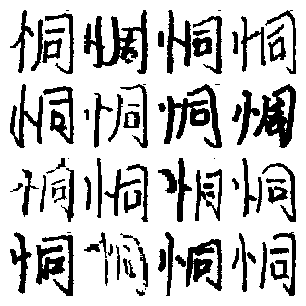 恫恫恫恫
恫恫恫恫
恫恫恫恫
恫恫恫恫